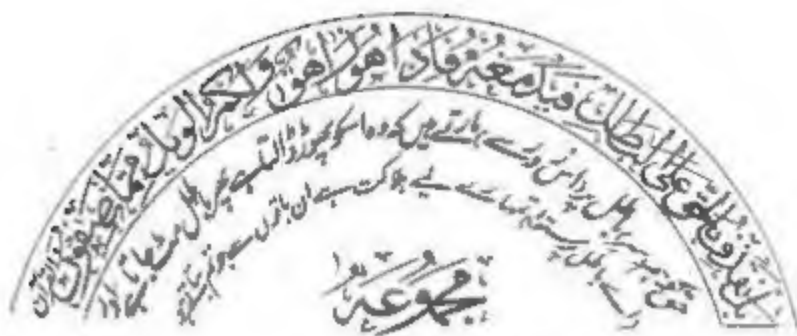 بَلْ نَقْذِفُ بِالْحَقِّ عَلَى الْبَاطِلِ فَيَدْمَغُهُ فَإِذَا هُوَ زَاهِقٌ وَلَكُمُ الْوَيْلُ مِمَّا تَصِفُونَ
حق کو ہم سر باطل پر اس زور سے مارتے ہیں کہ وہ اسکو پھوڑ ڈالتا ہے پس باطل مٹ جاتا ہے اور
اے باطل پرستو تمہارے لیے ہلاکت ہے ان باتوں سے جو تم بناتے ہو
مجموعہ